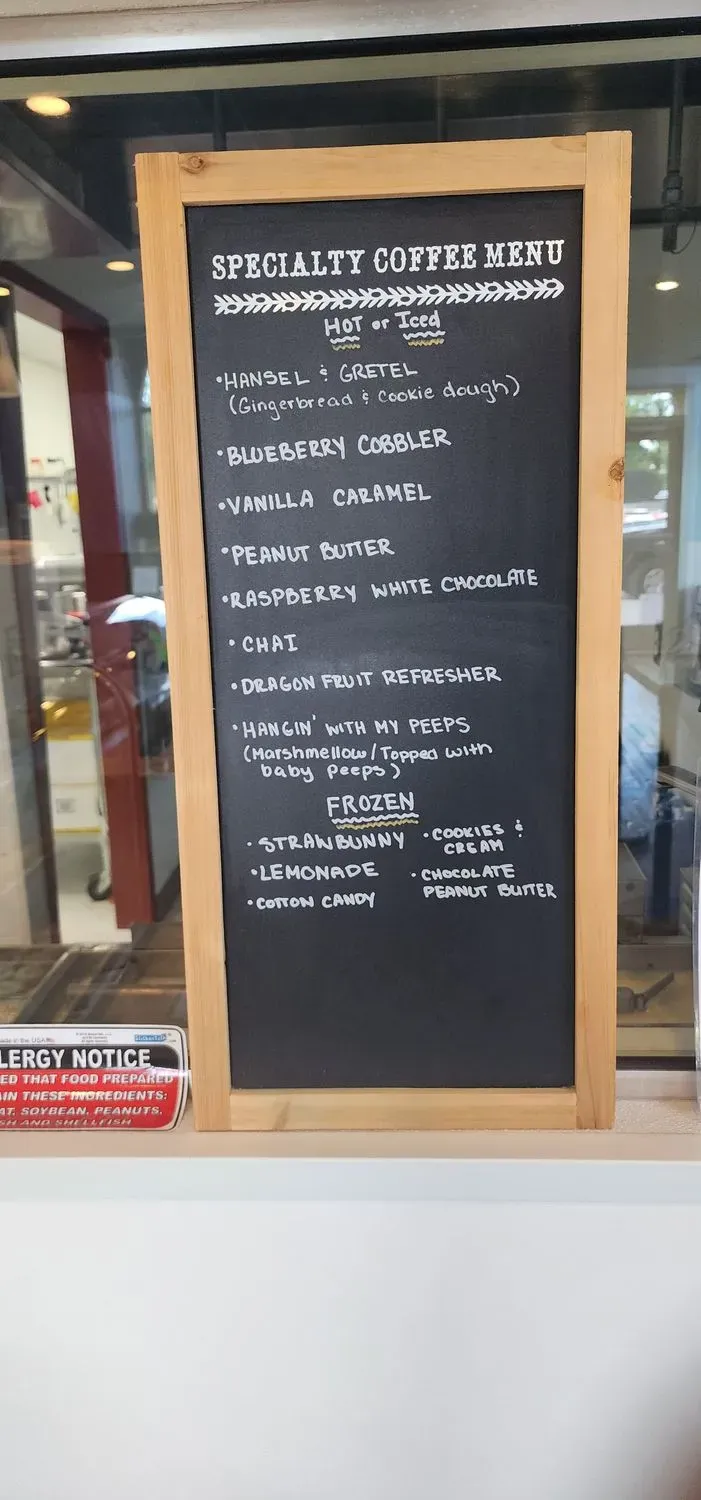 SPECIALTY COFFEE MENU
HOT or Iced
•HANSEL & GRETEL
(Gingerbread & Cookie dough)
•BLUEBERRY COBBLER
•VANILLA CARAMEL
•PEANUT BUTTER
•RASPBERRY WHITE CHOCOLATE
•CHAI
•DRAGON FRUIT REFRESHER
•HANGIN' WITH MY PEEPS
(Marshmellow/Topped with
baby peeps)
FROZEN
•STRAWBUNNY
•LEMONADE
•COTTON CANDY
•COOKIES &
CREAM
•CHOCOLATE
PEANUT BUTTER
made in the USA
LERGY NOTICE
ED THAT FOOD PREPARED
AIN THESE INGREDIENTS:
AT, SOYBEAN, PEANUTS,
SH AND SHELLFISH